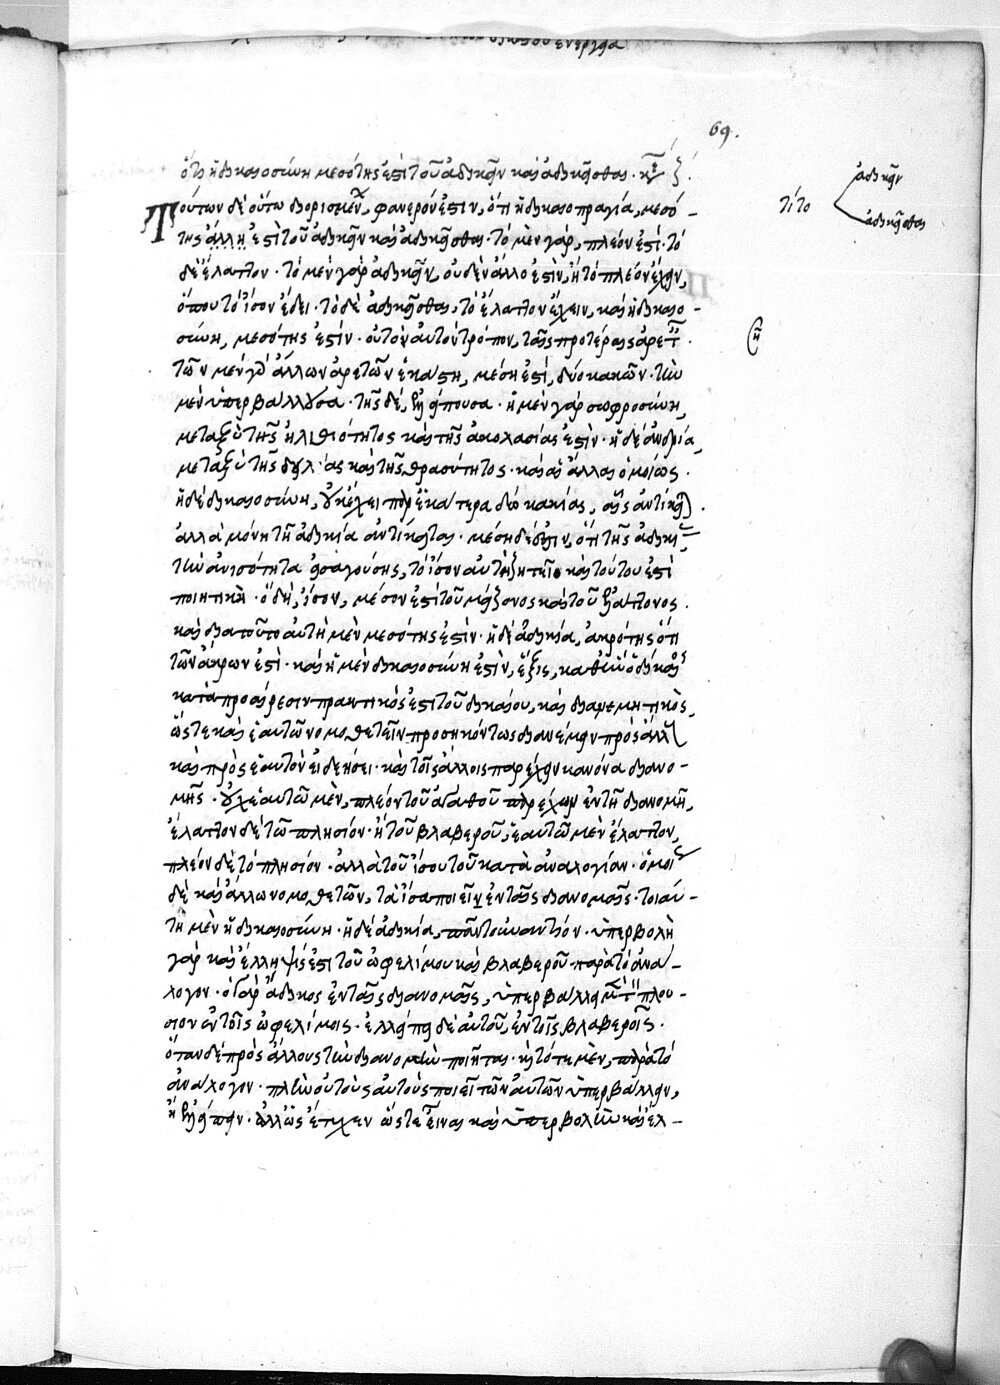 69.
ὅτι ἡ δικαιοσύνη μεσότης ἐστὶ τοῦ ἀδικεῖν καὶ ἀδικεῖσθαι.
Τούτων δὲ οὕτω διορισμένων, φανερόν ἐστιν, ὅτι ἡ δικαιοπραγία, μεσό-
της ἄλλη ἐστὶ τοῦ ἀδικεῖν καὶ ἀδικεῖσθαι. τὸ μὲν γάρ, πλέον ἐστί. τὸ
δὲ ἔλαττον. τὸ μὲν γὰρ ἀδικεῖν, οὐδὲν ἄλλο ἐστὶν, ἢ τὸ πλέον ἔχειν,
ὅπου τὸ ἴσον ἔδει. τὸ δὲ ἀδικεῖσθαι, τὸ ἔλαττον ἔχειν, καὶ ἡ δικαιο-
σύνη, μεσότης ἐστίν. οὐ τὸν αὐτὸν τρόπον, ταῖς προτέραις ἀρεταῖς.
τῶν μὲν γὰρ ἄλλων ἀρετῶν ἑκάστη, μέση ἐστί, δύο κακῶν. τὴν
μὲν ὑπερβάλλουσα. τῆς δέ, ἐλλείπουσα. ἡ μὲν γὰρ σωφροσύνη,
μεταξὺ τῆς ἠλιθιότητος καὶ τῆς ἀκολασίας ἐστίν. ἡ δὲ ἀνδρία,
μεταξὺ τῆς δειλίας καὶ τῆς θρασύτητος. καὶ αἱ ἄλλαι ὁμοίως.
ἡ δὲ δικαιοσύνη, οὐκ ἔχει παρ' ἑκάτερα δύο κακίας, αἷς ἀντίκειται.
ἀλλὰ μόνῃ τῇ ἀδικίᾳ ἀντίκειται. μέση δέ ἐστιν, ὅτι τῆς ἀδικίας
τὴν ἀνισότητα εἰσαγούσης, τὸ ἴσον αὐτὴ ζητεῖ καὶ τούτου ἐστὶ
ποιητική. ὃ δή, ἴσον, μέσον ἐστὶ τοῦ μείζονος καὶ τοῦ ἐλάττονος.
καὶ διὰ τοῦτο αὐτὴ μὲν μεσότης ἐστίν. ἡ δὲ ἀδικία, ἀκρότης ὅτι
τῶν ἄκρων ἐστί. καὶ ἡ μὲν δικαιοσύνη ἐστίν, ἕξις, καθ' ἣν ὁ δίκαιος
κατὰ προαίρεσιν πρακτικός ἐστι τοῦ δικαίου, καὶ διανεμητικὸς,
ὥστε καὶ ἑαυτῶ νομοθετεῖν προσηκόντως διανέμειν πρὸς ἄλλον
καὶ πρὸς ἑαυτὸν εἰ δεήσει. καὶ τοῖς ἄλλοις παρέχειν κανόνα διανο-
μῆς. οὐχ ἑαυτῶ μὲν, πλέον τοῦ ἀγαθοῦ παρέχων ἐν τῇ διανομῇ,
ἔλαττον δὲ τῶ πλησίον. ἢ τοῦ βλαβεροῦ, ἑαυτῶ μὲν ἔλαττον,
πλέον δὲ τὸ πλησίον. ἀλλὰ τοῦ ἴσου τοῦ κατὰ ἀναλογίαν. ὁμοίως
δὲ καὶ ἄλλω νομοθετῶν, τὰ ἴσα ποιεῖν ἐν ταῖς διανομαῖς. τοιαύ-
τη μὲν ἡ δικαιοσύνη. ἡ δὲ ἀδικία, πᾶν τοὐναντίον. ὑπερβολὴ
γὰρ καὶ ἔλλειψίς ἐστι τοῦ ὠφελίμου καὶ βλαβεροῦ παρὰ τὸ ἀνά-
λογον. ὁ γὰρ ἄδικος ἐν ταῖς διανομαῖς, ὑπερβάλλει πλου-
σιον ἐν τοῖς ὠφελίμοις. ἐλλείπει δὲ αὐτοῦ, ἐν τοῖς βλαβεροῖς.
ὅταν δὲ πρὸς ἄλλους τὴν διανομὴν ποιῆται. μὲν, παρὰ τὸ
ἀνάλογον. πλὴν οὐ τοὺς αὐτοὺς ποιεῖ τῶν αὐτῶν ὑπερβάλλειν,
ἢ ἐλλείπειν. ἀλλ' ὡς ἔτυχεν ὥστε εἶναι καὶ ὑπερβολὴν καὶ ἐλ-
τί τὸ
ἀδικεῖν
ἀδικεῖσθαι
ἡ